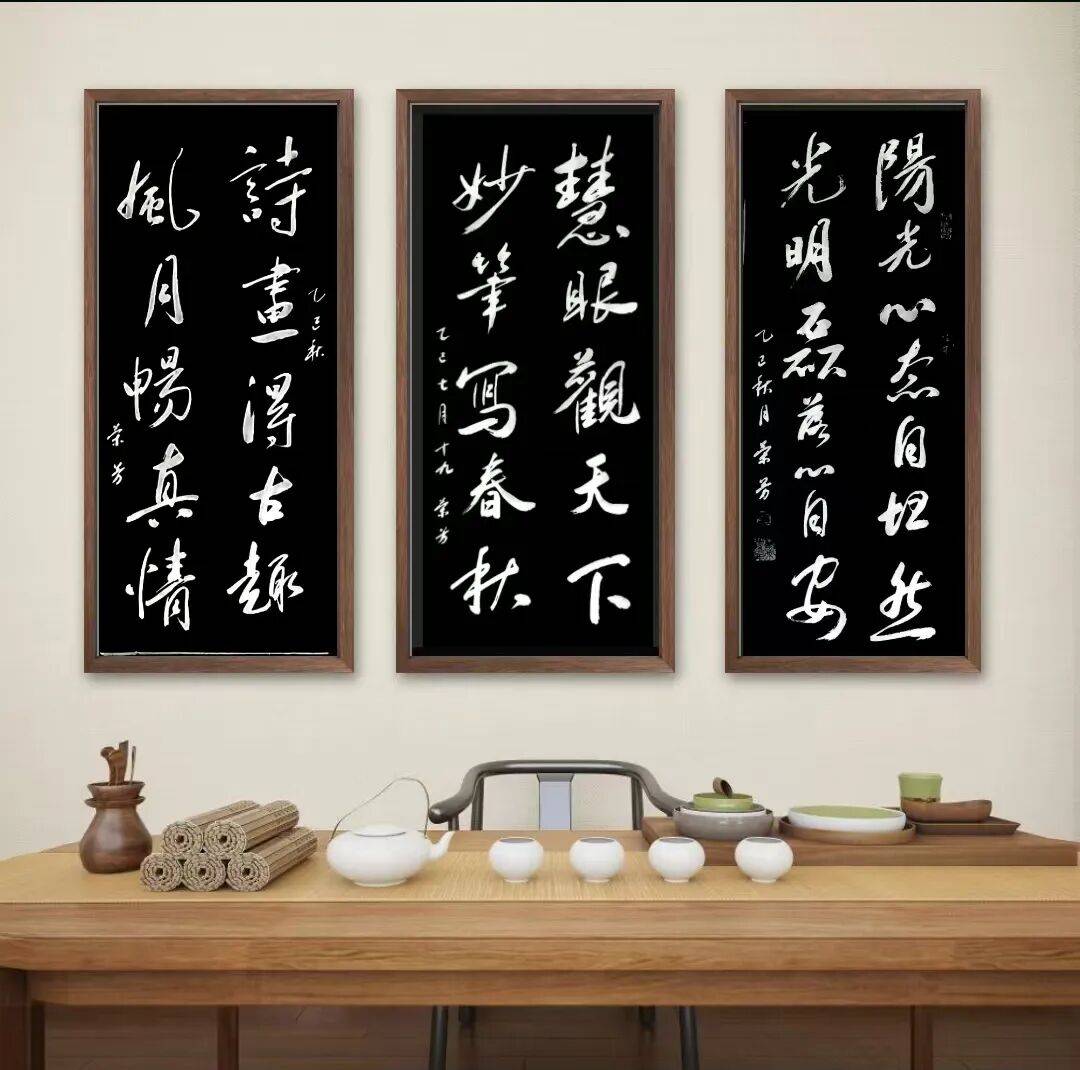 陽光心态自坦然
光明磊落心自安
乙巳秋月荣芳
慧眼觀天下
妙筆寫春秋
乙巳七月十九荣芳
詩畫得古趣
乙巳秋
風月暢真情
荣芳